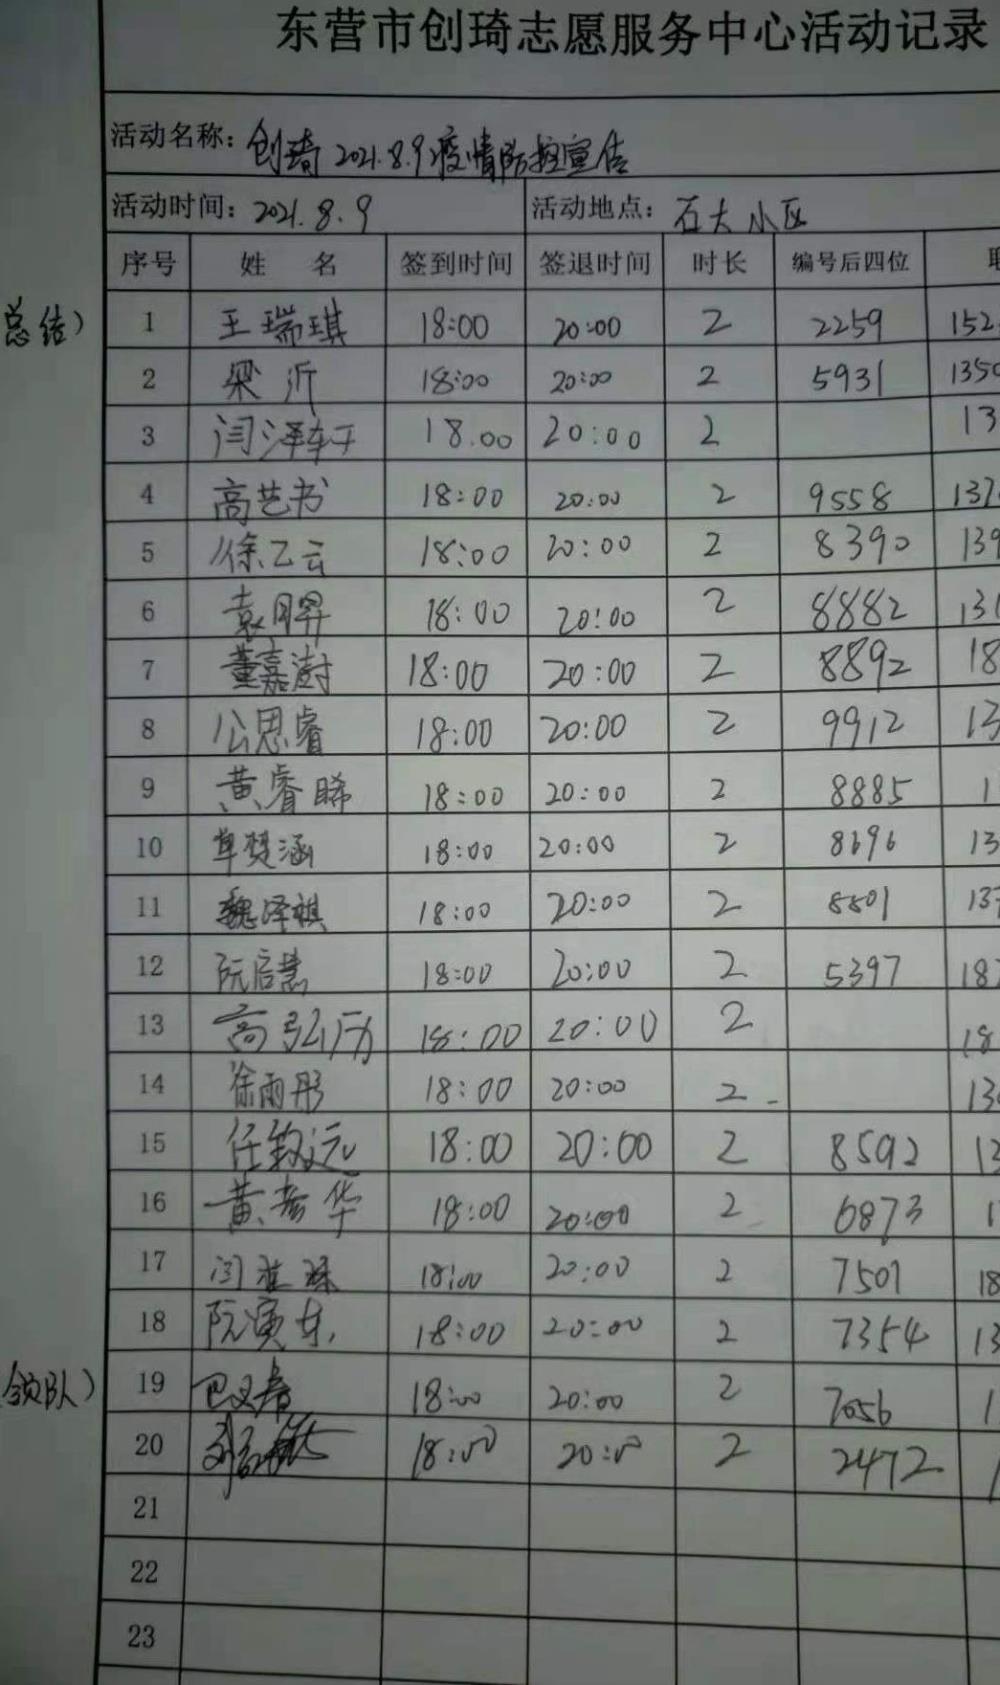 东营市创琦志愿服务中心活动记录
活动名称：创琦2021.8.9疫情防控宣传
活动时间：2021.8.9 活动地点：石大小区
序号 姓 名 签到时间 签退时间 时长 编号后四位 联
总结） 1 王瑞琪 18:00 20:00 2 2259 152
2 梁沂 18:00 20:00 2 5931 1350
3 闫泽轩 18.00 20:00 2 13
4 高艺书 18:00 20:00 2 9558 137
5 徐乙云 18:00 20:00 2 8390 139
6 袁 18:00 20:00 2 8882 131
7 董嘉澍 18:00 20:00 2 8892 18
8 公思睿 18:00 20:00 2 9912 13
9 黄睿晞 18:00 20:00 2 8885 1
10 单楚涵 18:00 20:00 2 8696 13
11 魏泽祺 18:00 20:00 2 8801 137
12 阮启慧 18:00 20:00 2 5397 187
13 高弘历 18:00 20:00 2 18
14 徐雨彤 18:00 20:00 2 13
15 任致远 18:00 20:00 2 8592 13
16 黄彦华 18:00 20:00 2 6873 1
17 闫 18:00 20:00 2 7501 18
18 阮演东 18:00 20:00 2 7354 13
领队） 19 巴 18:00 20:00 2 7056 1
20 18:00 20:00 2 2472 1
21
22
23